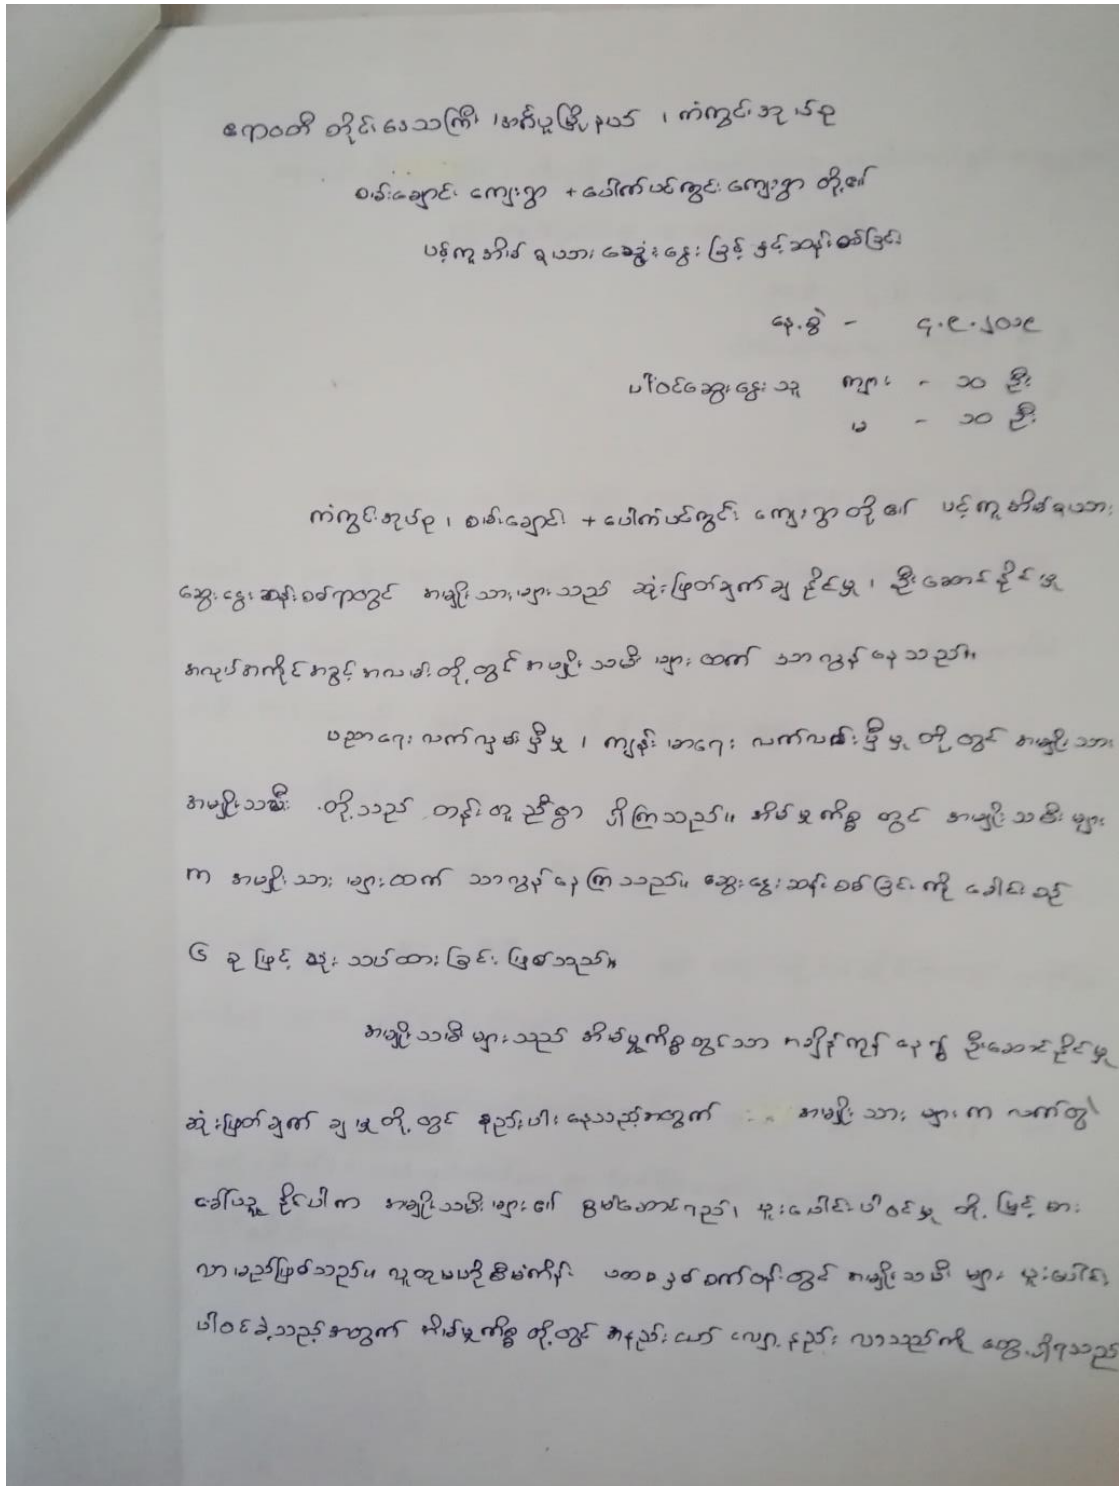 ဧရာဝတီ တိုင်းဒေသကြီး ၊အင်္ဂပူမြို့နယ် ၊ ကံကွင်းအုပ်စု
စမ်းချောင်း ကျေးရွာ + ပေါက်ပင်ကွင်း ကျေးရွာ တို့၏
ပင့်ကူအိမ် ရုပ်သား ဆွေးနွေး ခြင်း နှင့်ဆန်းစစ်ခြင်း
နေ့စွဲ - ၄.၉.၂၀၁၉
ပါဝင်ဆွေးနွေးသူ ကျား - ၁၀ ဦး
မ - ၁၀ ဦး
ကံကွင်းအုပ်စု ၊ စမ်းချောင်း + ပေါက်ပင်ကွင်း ကျေးရွာတို့၏ ပင့်ကူအိမ်ရုပ်သား
ဆွေးနွေးဆန်းစစ်ရာတွင် အမျိုးသားများသည် ဆုံးဖြတ်ချက်ချ နိုင်မှု ၊ ဦးဆောင်နိုင်မှု
အလုပ်အကိုင်အခွင့်အလမ်းတို့တွင် အမျိုးသမီးများထက် သာလွန်နေသည်။
ပညာရေး လက်လှမ်းမှီမှု ၊ ကျန်းမာရေး လက်လှမ်းမှီမှုတို့တွင် အမျိုးသား
အမျိုးသမီး တို့သည် တန်းတူညီစွာ ရှိကြသည်။ အိမ်မှုကိစ္စတွင် အမျိုးသမီးများ
က အမျိုးသားများထက် သာလွန်နေကြသည်။ ဆွေးနွေးဆန်းစစ်ခြင်းကို ခေါင်းစဉ်
၆ ခုဖြင့် သုံးသပ်ထားခြင်း ဖြစ်သည်။
အမျိုးသမီးများသည် အိမ်မှုကိစ္စတွင်သာ အချိန်ကုန်နေ၍ ဦးဆောင်နိုင်မှု
ဆုံးဖြတ်ချက်ချမှုတို့တွင် နည်းပါးနေသည့်အတွက် အမျိုးသားများက လက်တွဲ
ခေါ်ယူနိုင်ပါက အမျိုးသမီးများ၏ စွမ်းဆောင်ရည်၊ ပူးပေါင်းပါဝင်မှုတို့ မြင့်မား
လာမည်ဖြစ်သည်။ လူထုဗဟိုစီမံကိန်း ပထမနှစ်စက်ဝန်းတွင် အမျိုးသမီးများ ပူးပေါင်း
ပါဝင်ခဲ့သည့်အတွက် အိမ်မှုကိစ္စတို့တွင် အနည်းငယ် လျော့နည်းလာသည်ကို တွေ့ရှိရသည်